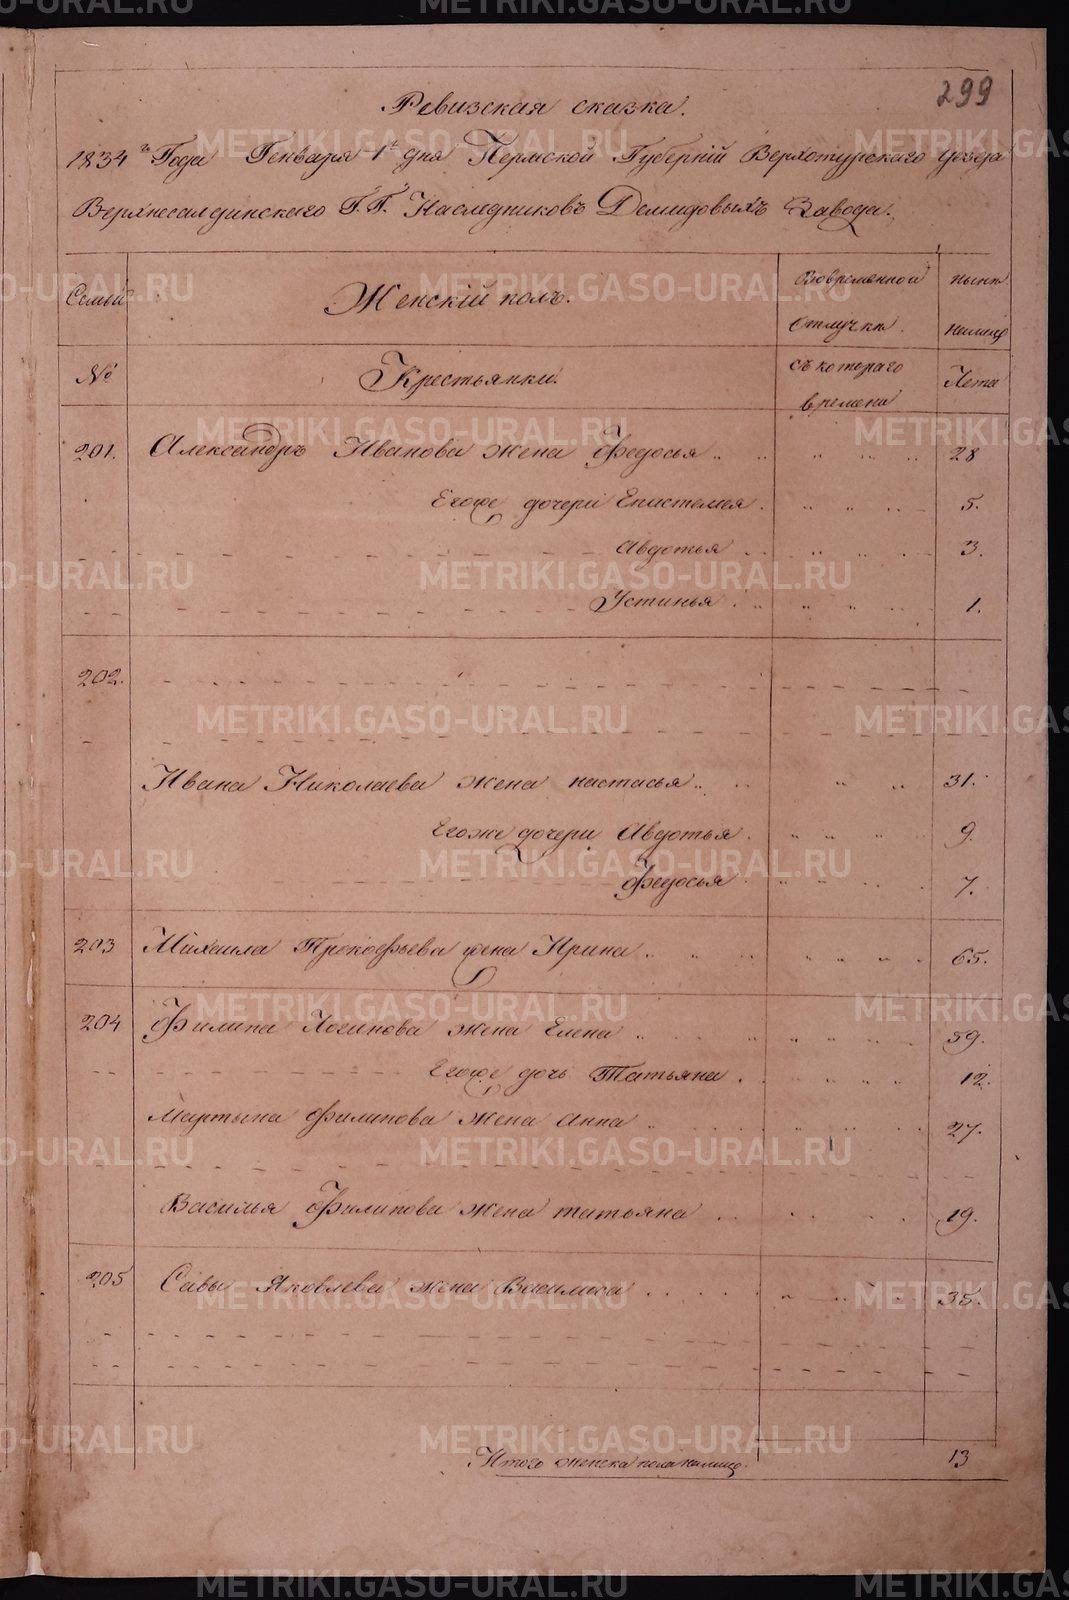 299
Ревизская сказка.
1834го Года Генваря 1го дня Пермской Губернiй Верхотурского уезда
Верхнесалдинского Г.Г. Наследниковъ Демидовыхъ Завода.
Семьи Женскiй полъ. Вовременной отлучки. ныне налицо
№ Крестьянки. съ котораго времени Лета
201. Александръ Иванова жена Федосья 28
Егоже дочери Епистемея. 5.
Авдотья 3.
Устинья 1.
202.
Ивана Николаева жена настасья 31.
Егоже дочери Авдотья. 9.
Федосья 7.
203 Михаила Прокофьева жена Ирина 65.
204 Филипа Логинова жена Елена 59.
Егоже дочь Татьяна 12.
Мартына Филипова жена анна 27.
Василья Филипова жена татьяна 19.
205 Савы Яковлева жена Василиса 35.
Итого женска пола налицо. 13
METRIKI.GASO-URAL.RU